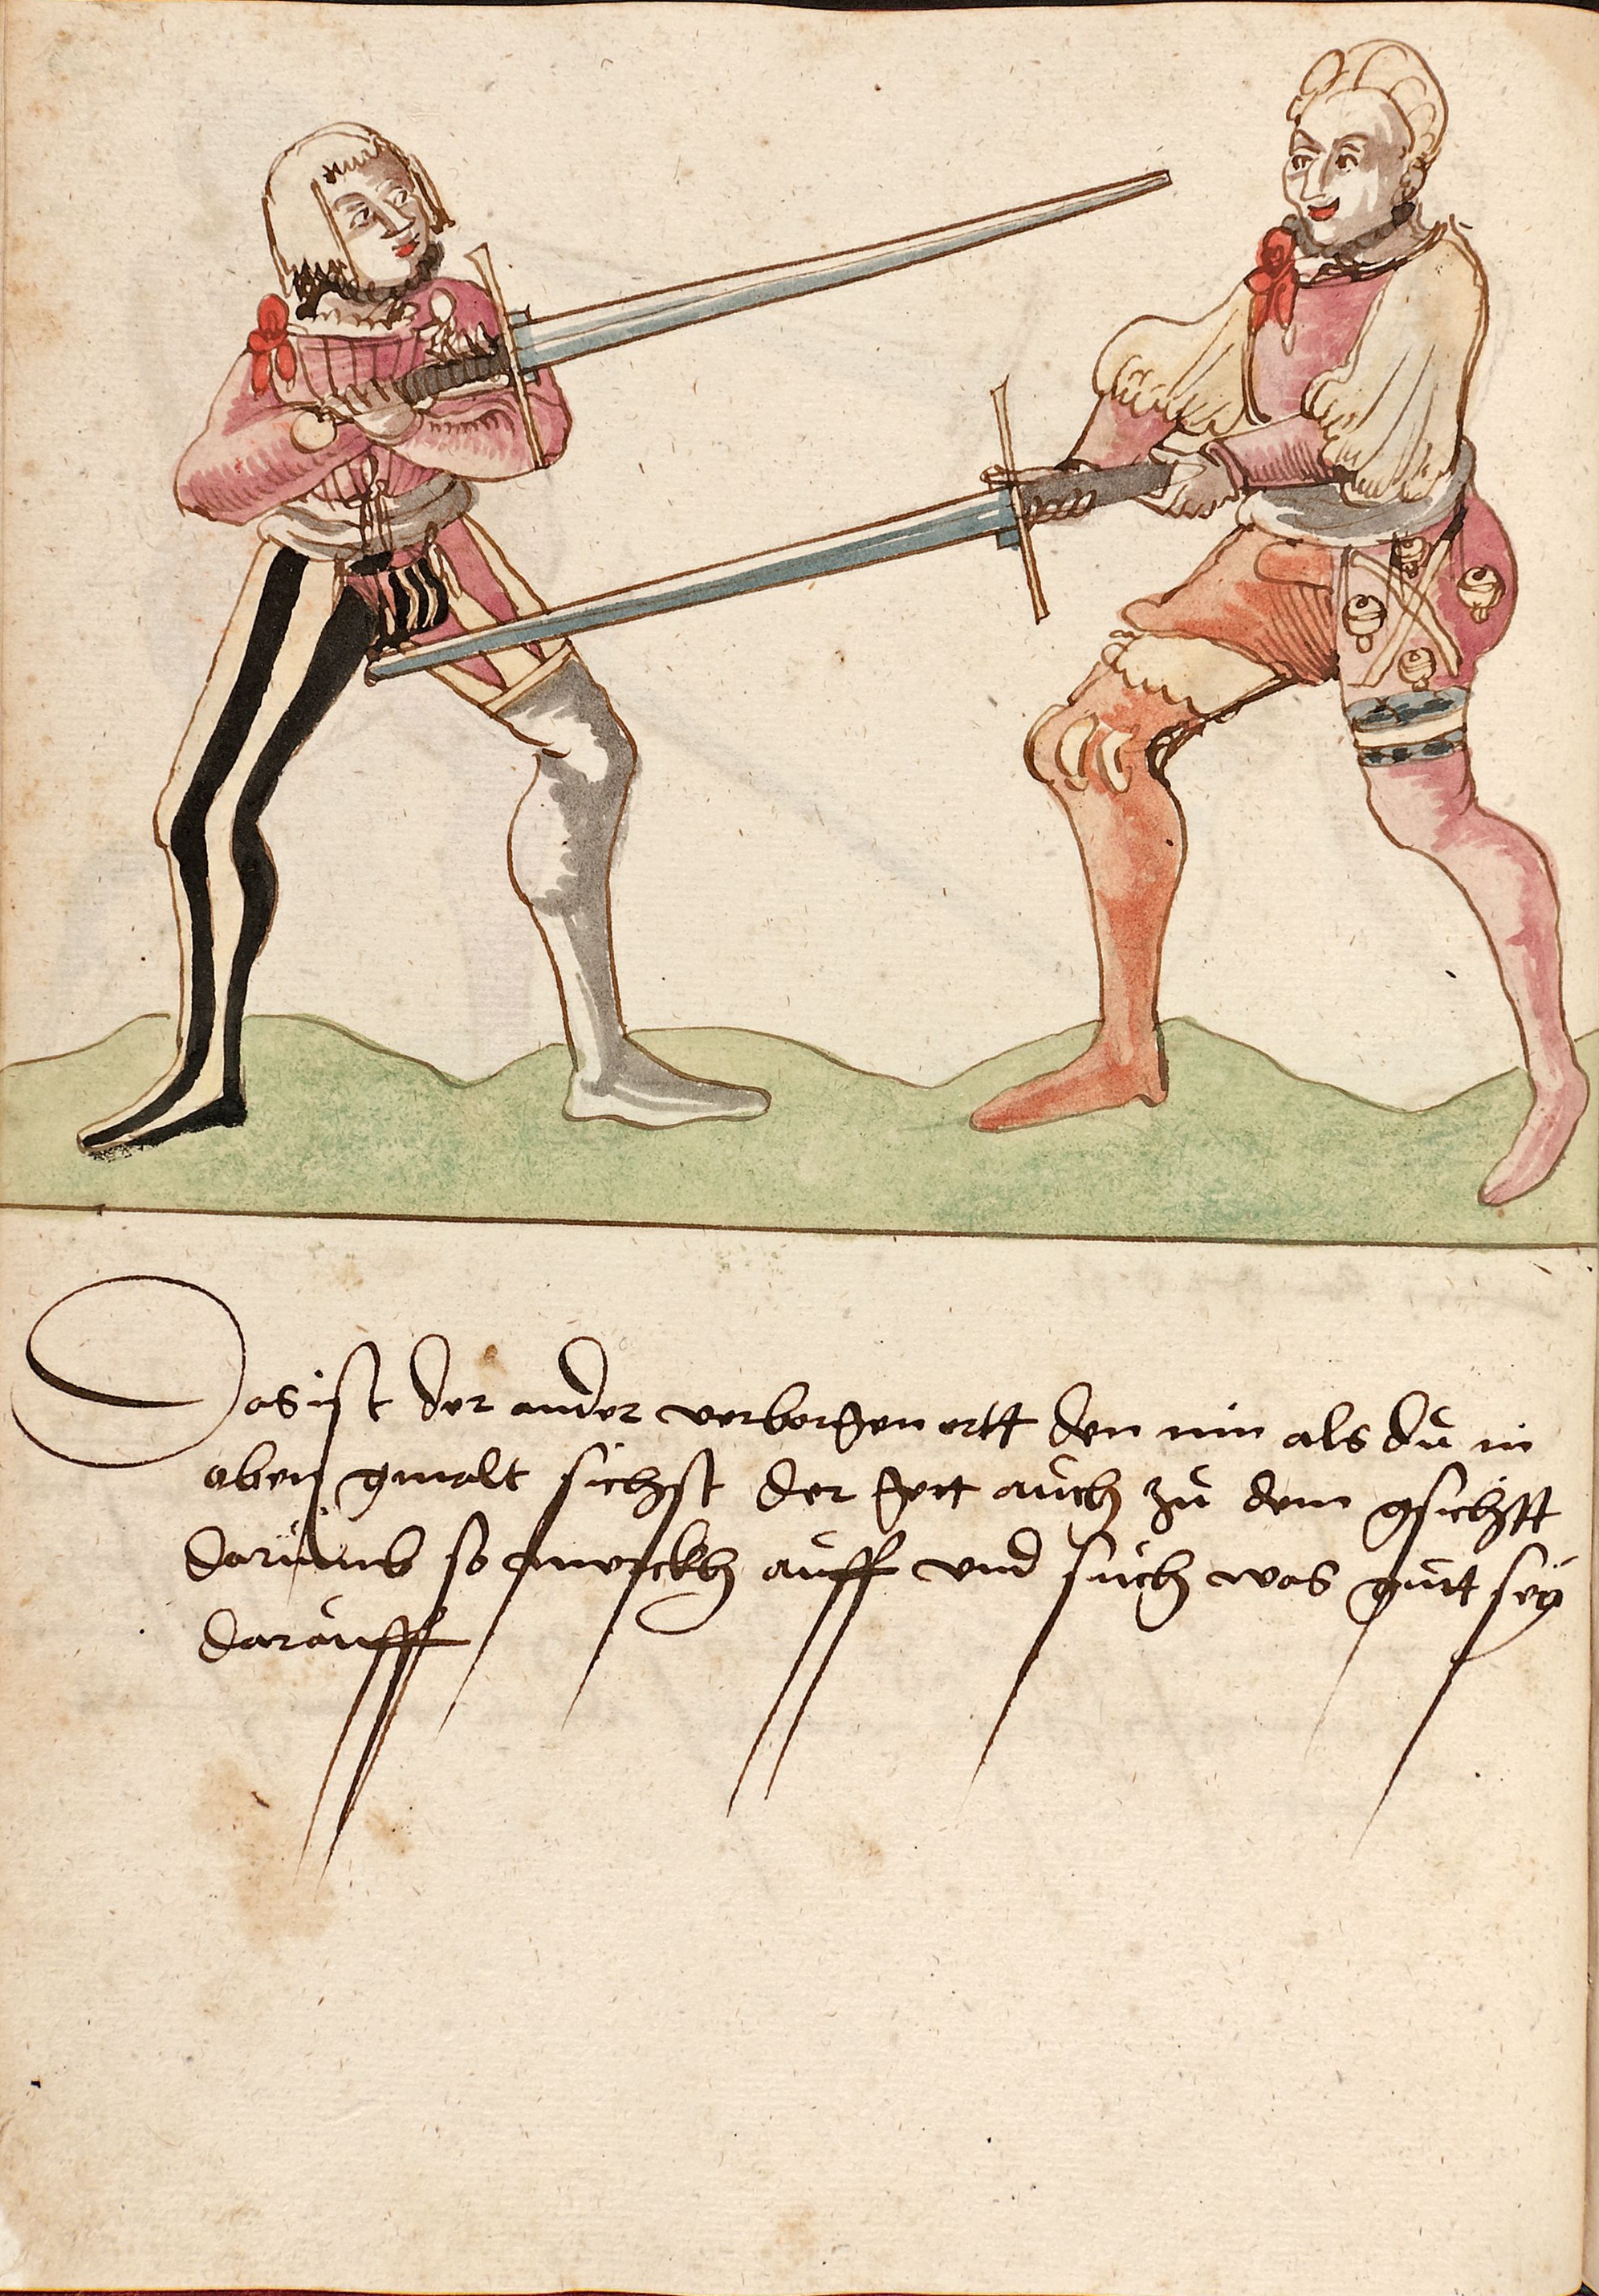 Das ist der ander verborgen ortt den nim als dů in
oben gmalt sichst der gett aůch zů dem gsichtt
darůmb so merckh aůff vnd sůch was gůtt seÿ
daraůff